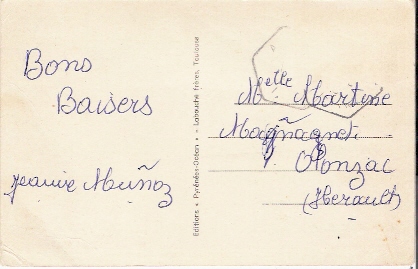 Bons
Baisers
Jeanine Muñoz
Editions • Pyrénées-Océan • - Labouche frères, Toulouse
Melle Martine
Magnagnet
Olonzac
(Herault)